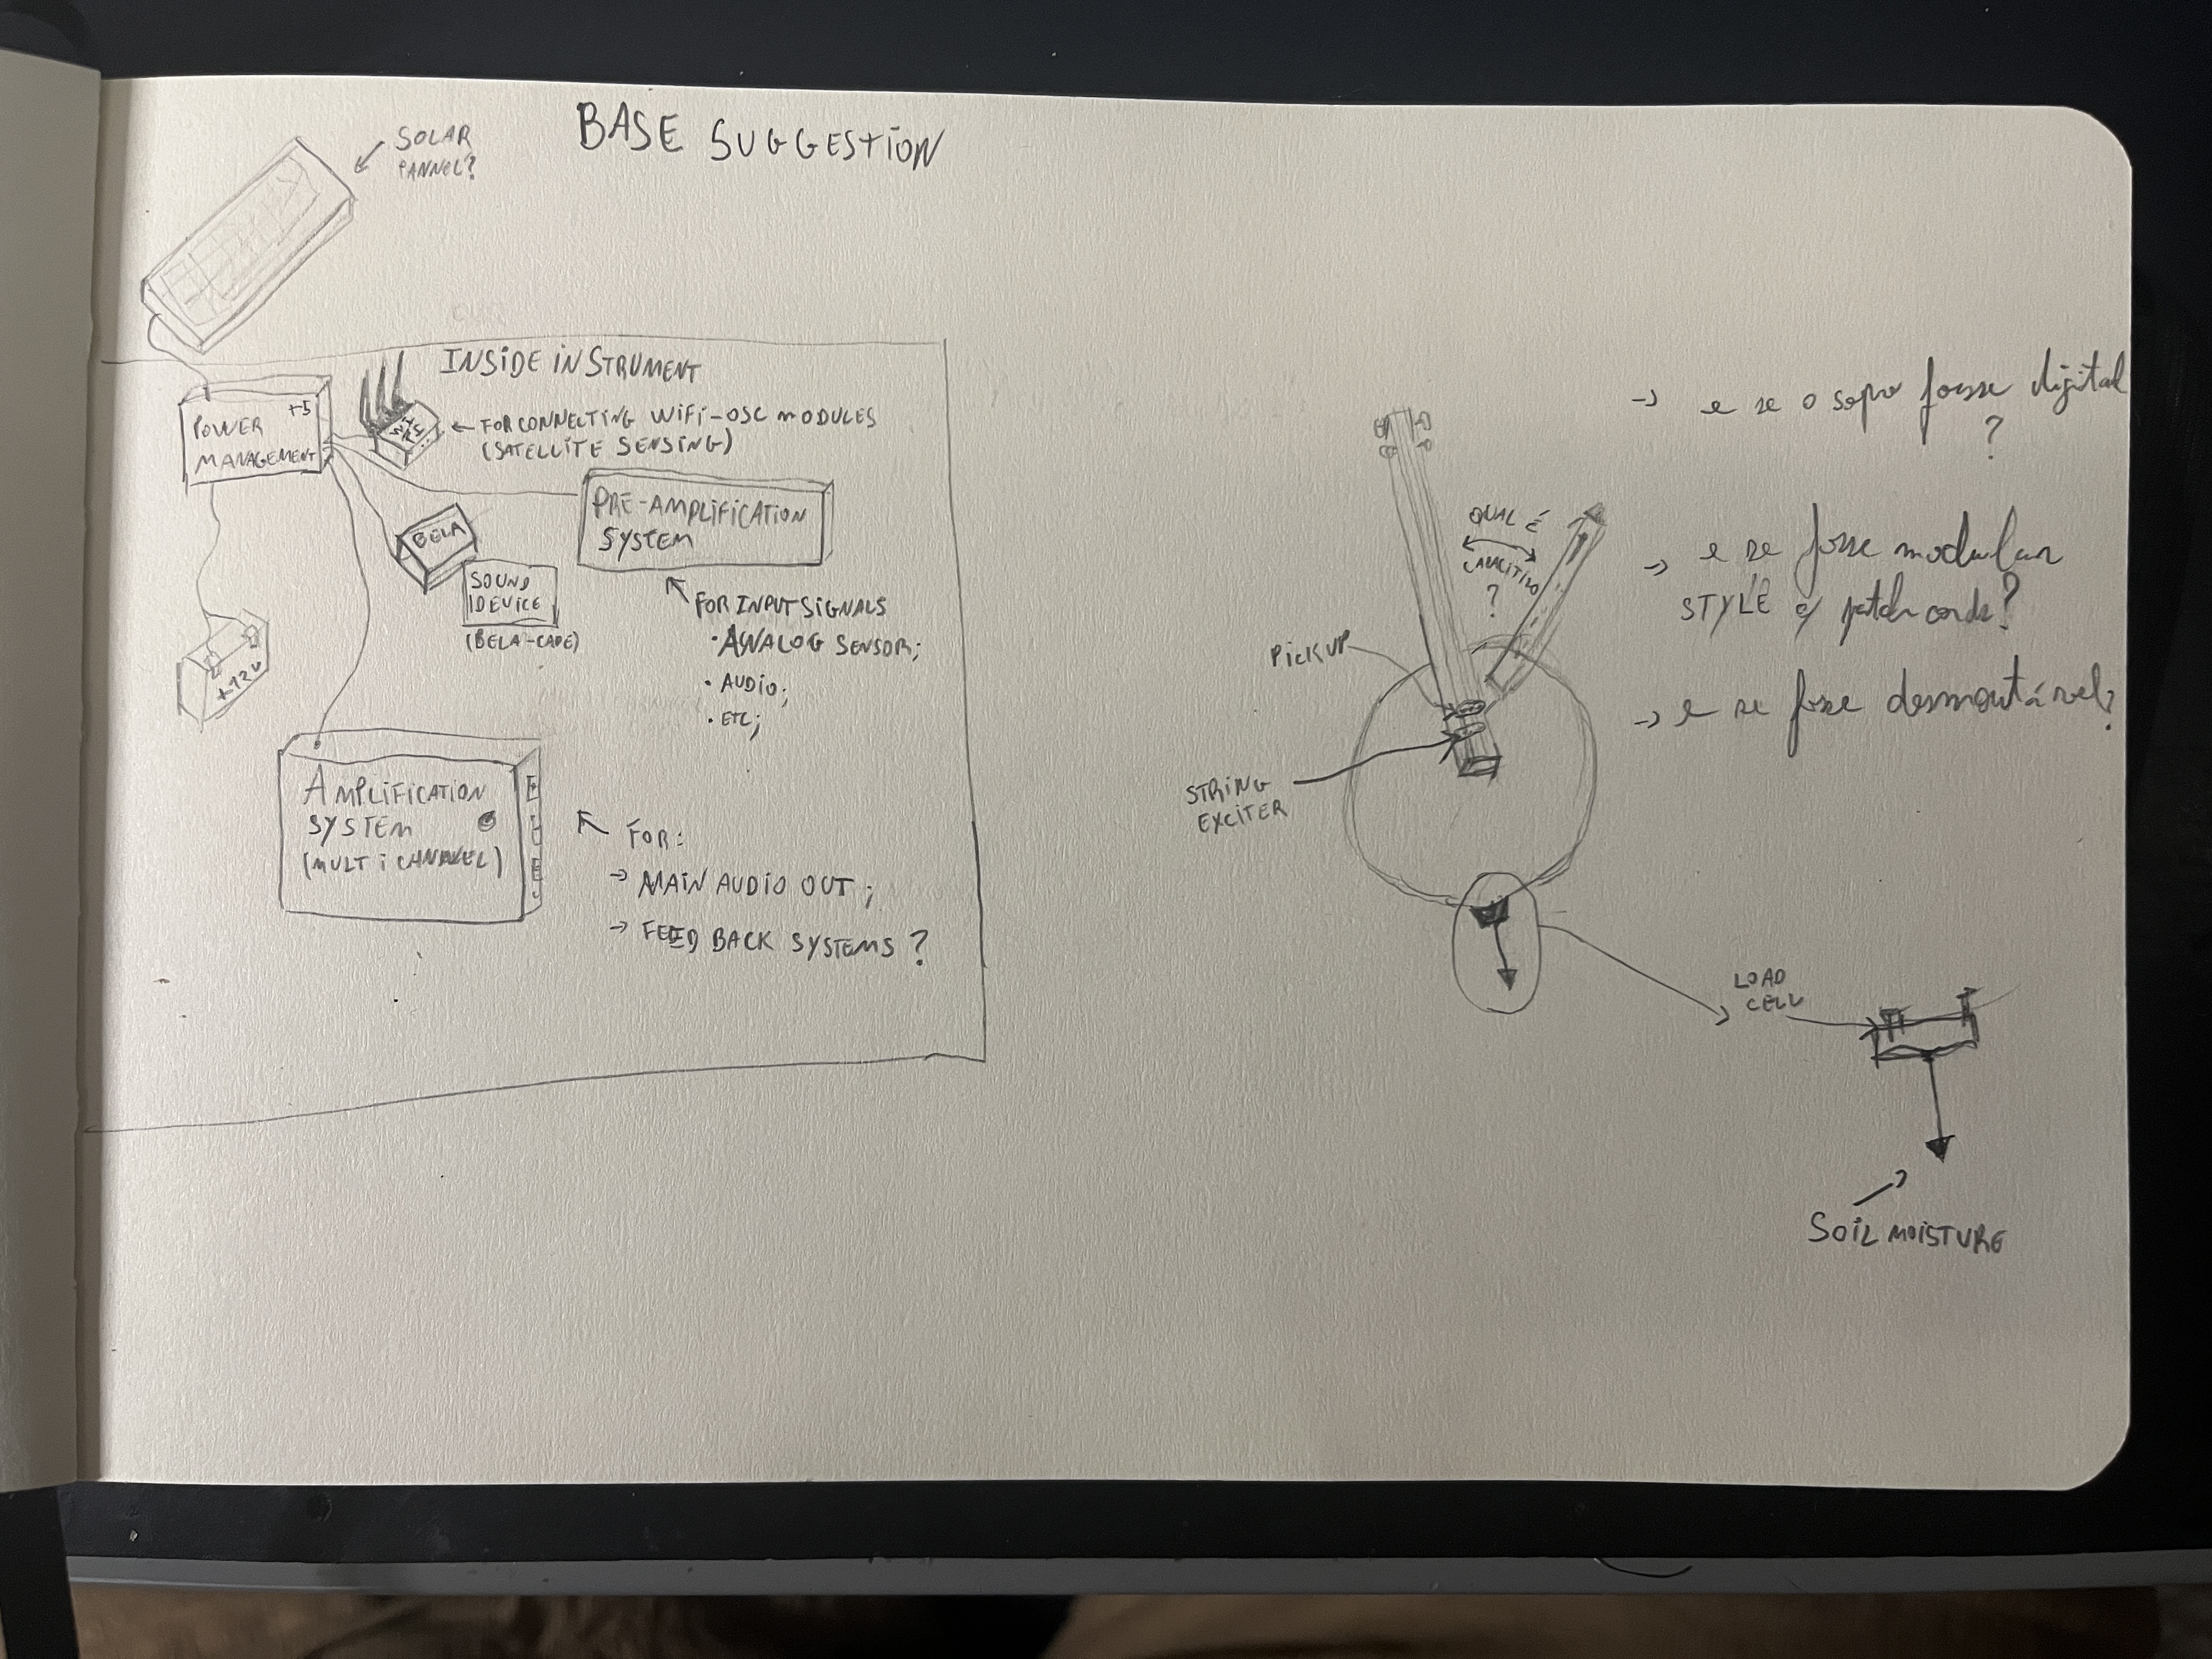 BASE SUGGESTION
SOLAR
PANNEL?
INSIDE INSTRUMENT
POWER +5
MANAGEMENT
WIFI
← FOR CONNECTING WIFI-OSC MODULES
(SATELLITE SENSING)
BELA
SOUND
DEVICE
(BELA-CAPE)
PRE-AMPLIFICATION
SYSTEM
FOR INPUT SIGNALS
· ANALOG SENSOR;
· AUDIO;
· ETC;
+12V
AMPLIFICATION
SYSTEM
(MULTICHANNEL)
FOR:
→ MAIN AUDIO OUT;
→ FEEDBACK SYSTEMS?
QUAL É
CAPACITIVO
?
PICKUP
STRING
EXCITER
→ e se o sopro fosse digital
?
→ e se fosse modular
STYLE c/ patch cords?
→ e se fosse desmontável?
LOAD
CELL
SOIL MOISTURE